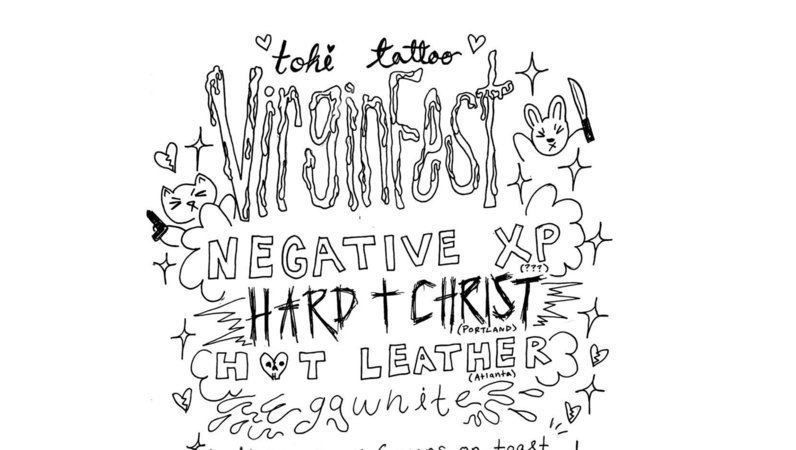 toki tattoo
VirginFest
NEGATIVE XP
(???)
HARD CHRIST
(PORTLAND)
HOT LEATHER
(Atlanta)
eggwhite
on toast